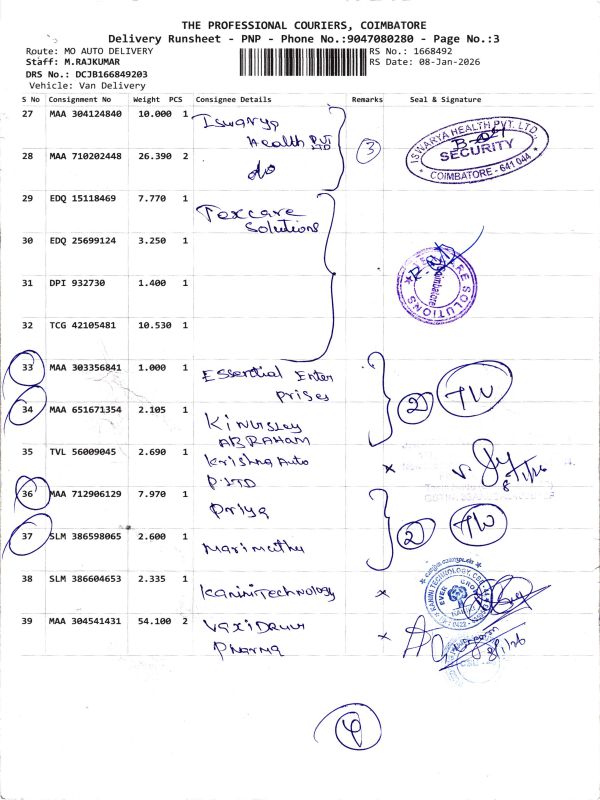 THE PROFESSIONAL COURIERS, COIMBATORE
Delivery Runsheet - PNP - Phone No.:9047080280 - Page No.:3
Route: MO AUTO DELIVERY
RS No.: 1668492
Staff: M.RAJKUMAR
RS Date: 08-Jan-2026
DRS No.: DCJB166849203
Vehicle: Van Delivery
S No Consignment No Weight PCS Consignee Details Remarks Seal & Signature
27 MAA 304124840 10.000 1 Iswarya
Health PVT LTD
3
ISWARYA HEALTH PVT. LTD.,
SECURITY
COIMBATORE - 641 044
28 MAA 710202448 26.390 2 do
29 EDQ 15118469 7.770 1 Texcare
Solutions
30 EDQ 25699124 3.250 1
31 DPI 932730 1.400 1
SOLUTIONS
Coimbatore
32 TCG 42105481 10.530 1
33 MAA 303356841 1.000 1 Essential Enter
prises
2 TW
34 MAA 651671354 2.105 1 Kinursley
ABRAHAM
35 TVL 56009045 2.690 1 Krishna Auto
P.LTD
x
8/1/26
36 MAA 712906129 7.970 1 Priya
2 TW
37 SLM 386598065 2.600 1 Marimuthu
38 SLM 386604653 2.335 1 Kanini Technology
x
39 MAA 304541431 54.100 2 Vaxi Drun
Pharma
x
8/1/26
4